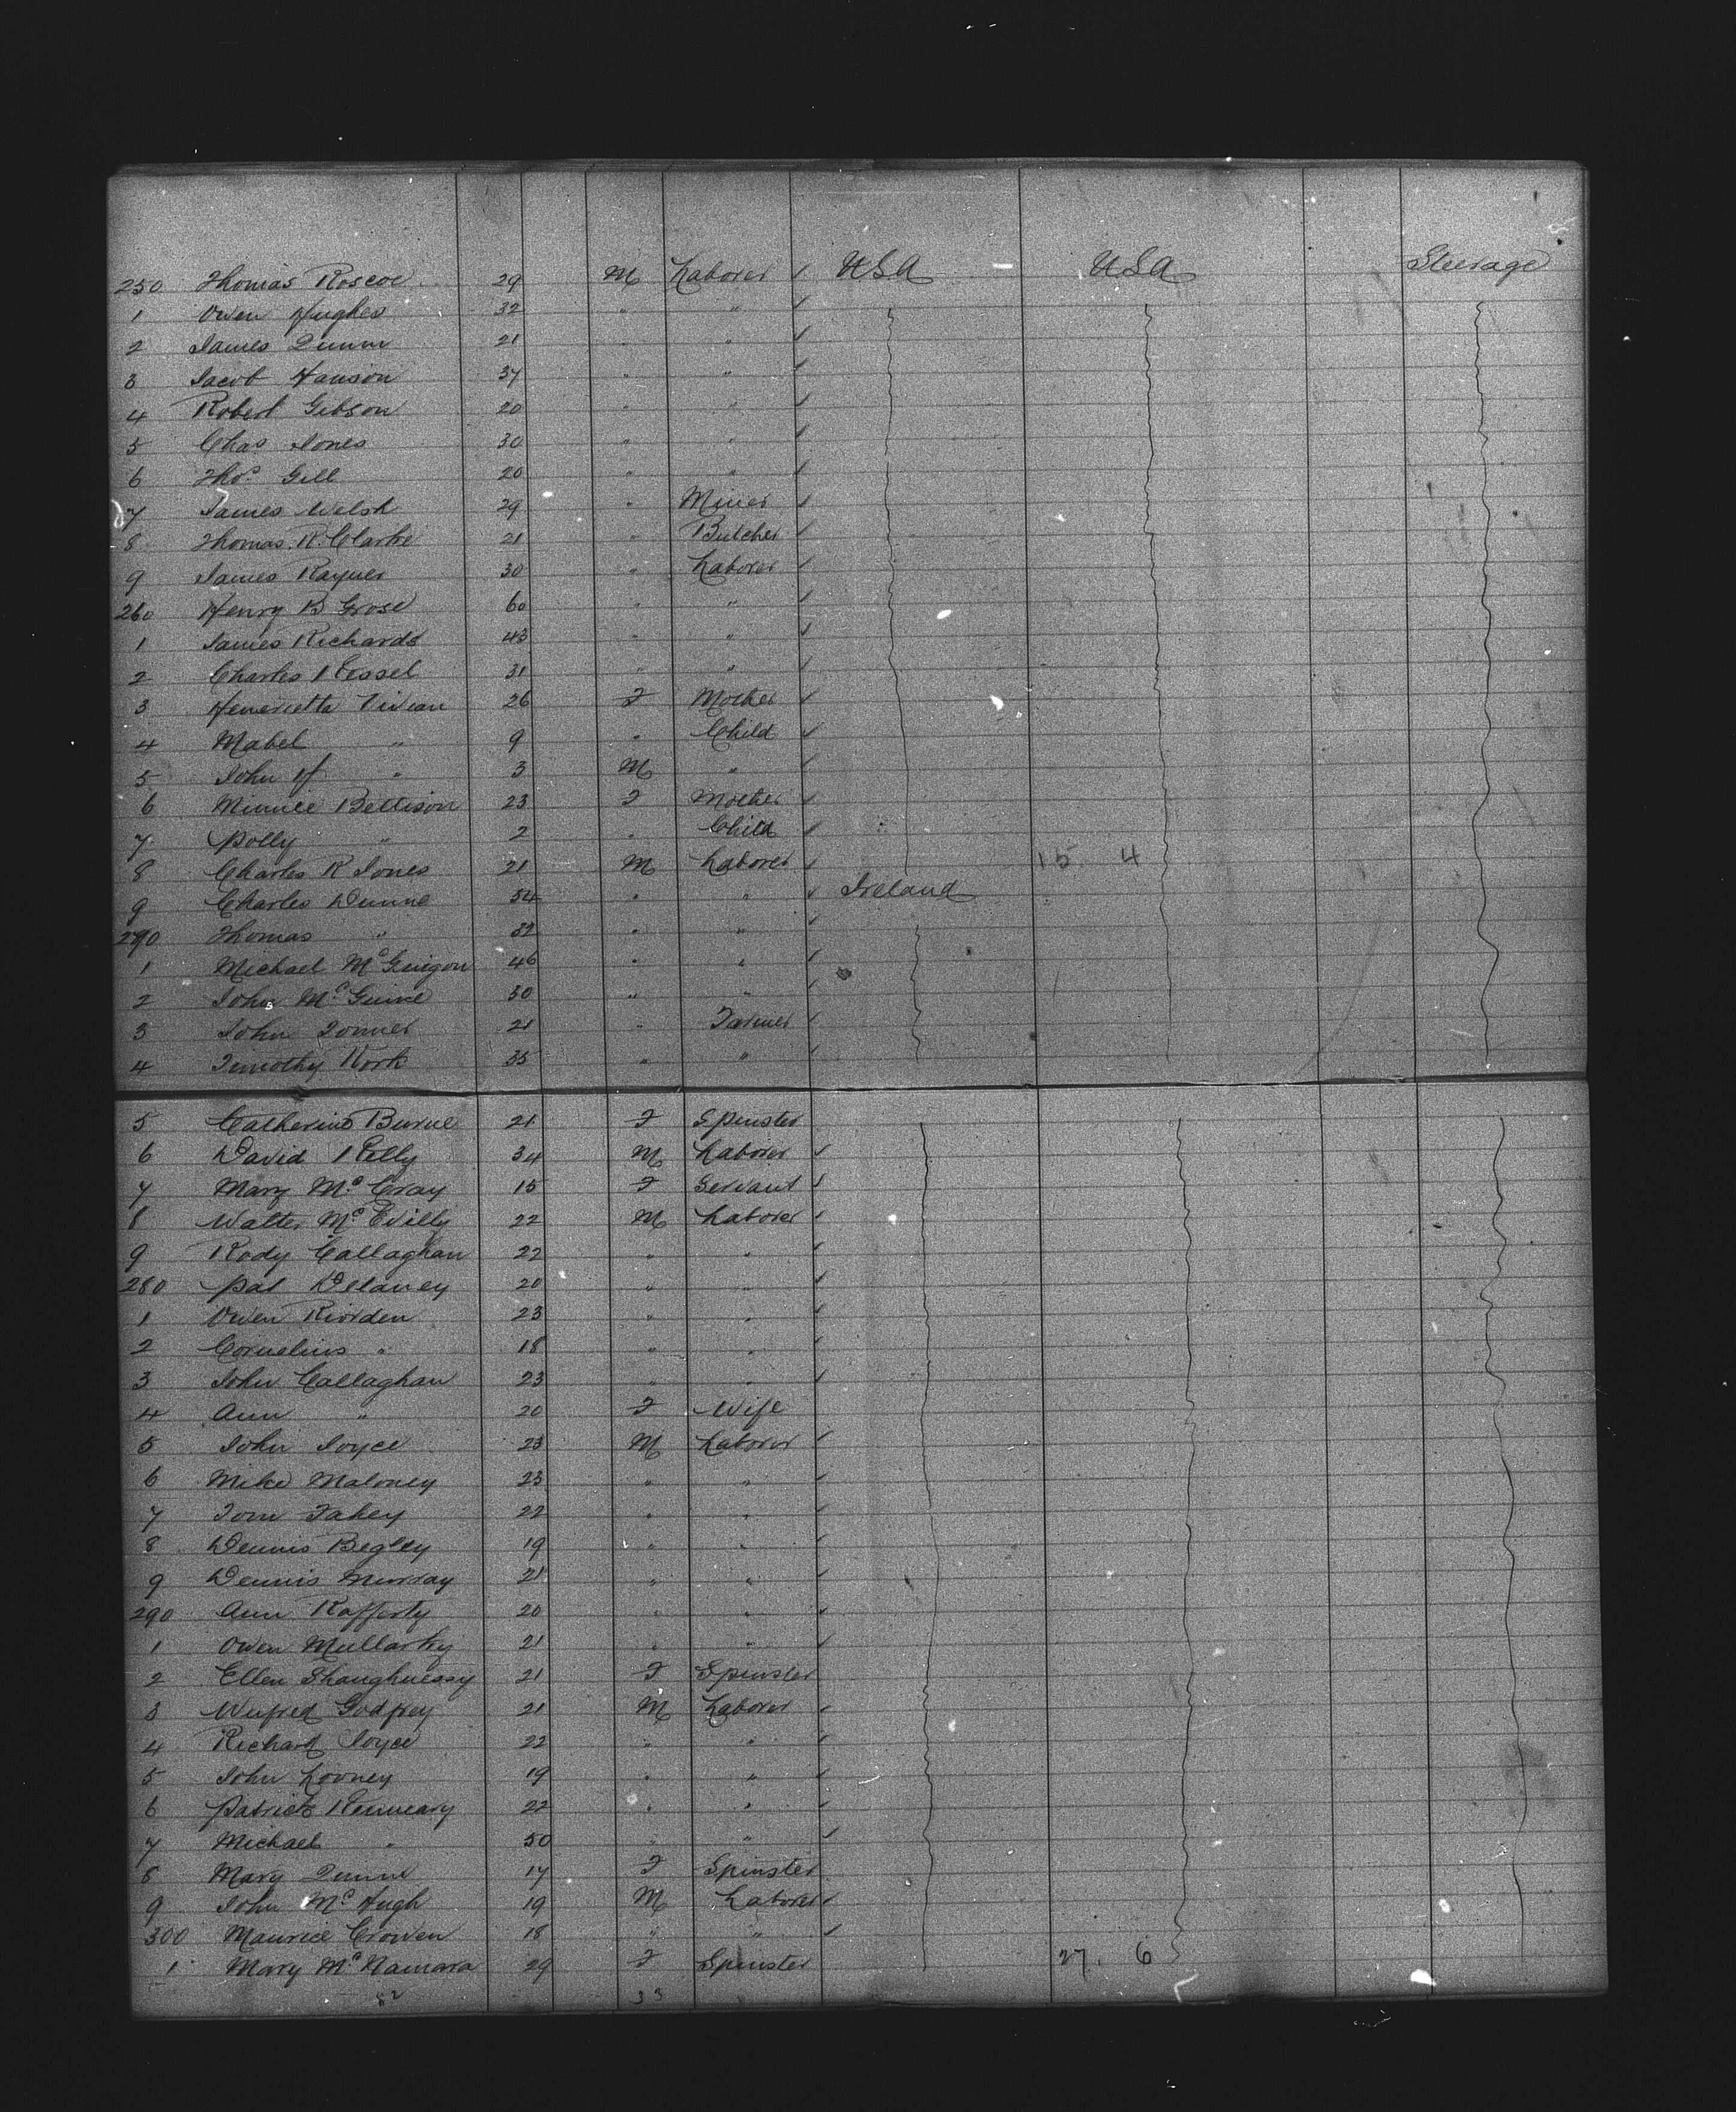 250 Thomas Roscoe 29 M Laborer ✓ USA USA Steerage
1 Owen Hughes 32 " " ✓
2 James Quinn 21 " " ✓
3 Jacob Hanson 37 " " ✓
4 Robert Gibson 20 " " ✓
5 Chas Jones 30 " " ✓
6 Thos. Gill 20 " " ✓
7 James Welsh 29 " Miner ✓
8 Thomas R. Clarke 21 " Butcher ✓
9 James Rayner 30 " Laborer ✓
260 Henry B Grose 60 " " ✓
1 James Richards 43 " " ✓
2 Charles Kessel 31 " " ✓
3 Henrietta Vivian 26 F Mother ✓
4 Mabel " 9 " Child ✓
5 John H " 3 M " ✓
6 Minnie Bettison 23 F Mother ✓
7 Polly " 2 " Child ✓
8 Charles R Jones 21 M Laborer ✓ 15 4
9 Charles Dunne 54 " " ✓ Ireland
270 Thomas " 32 " " ✓
1 Michael McGuigon 46 " " ✓
2 John McGuire 30 " " ✓
3 John Tonner 21 " Farmer ✓
4 Timothy Rork 35 " " ✓
5 Catherine Burne 21 F Spinster
6 David Kelly 34 M Laborer ✓
7 Mary McCray 15 F Servant ✓
8 Walter McEvilly 22 M Laborer ✓
9 Rody Callaghan 22 " " ✓
280 Pat Delaney 20 " " ✓
1 Owen Riorden 23 " " ✓
2 Cornelius " 18 " " ✓
3 John Callaghan 23 " " ✓
4 Ann " 20 F Wife
5 John Joyce 23 M Laborer ✓
6 Mike Maloney 23 " " ✓
7 Tom Fahey 22 " " ✓
8 Dennis Begley 19 " " ✓
9 Dennis Murray 21 " " ✓
290 Ann Rafferty 20 " " ✓
1 Owen Mullarky 21 " " ✓
2 Ellen Shaughnessy 21 F Spinster
3 Winfred Godfrey 21 M Laborer ✓
4 Richard Joyce 22 " " ✓
5 John Looney 19 " " ✓
6 Patrick Kenneary 22 " " ✓
7 Michael " 50 " " ✓
8 Mary Dunne 17 F Spinster
9 John McHugh 19 M Laborer ✓
300 Maurice Crowen 18 " " ✓
1 Mary McNamara 29 F Spinster 27. 6
82 33